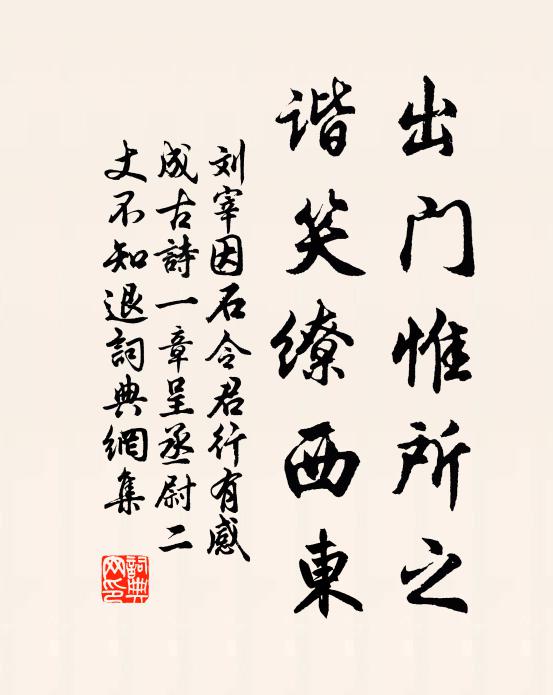 出门惟所之
谐笑缭西東
刘宰因石令君行有感
成古詩一章呈丞尉二
丈不知退詞典網集
詞典
网印